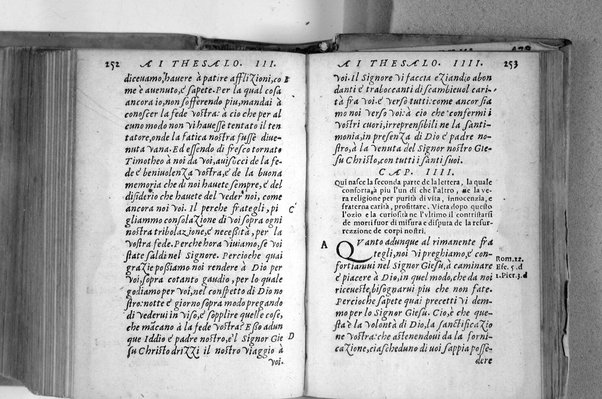 252 AI THESALO. III.
dicevamo, havere à patire afflizzioni, co
me è avenuto, e sapete. Per la qual cosa
ancora io, non sofferendo piu, mandai à
conoscer la fede vostra: à cio che per al
cuno modo non vi havesse tentato il ten
tatore, onde la fatica nostra fusse dive
nuta vana. Ed essendo di fresco tornato
Timotheo à noi da voi, avisocci de la fe
de e benivolenza vostra, e de la buona
memoria che di noi havete sempre, e del
disiderio che havete del veder noi, come
ancora noi voi. Il perche frategli, pi
gliammo consolazione di voi sopra ogni
nostra tribolazione, e necessità, per la
vostra fede. Perche hora viviamo, se voi
state saldi nel Signore. Percioche quai
grazie possiamo noi rendere à Dio per
voi, sopra cotanto gaudio, per lo quale
godiamo per voi, nel conspetto di Dio no
stro: notte e giorno sopra modo pregando
di vedervi in viso, e sopplire quelle cose,
che mãcano à la fede vostra? Esso adun
que Iddio e padre nostro, e'l Signor Gie
su Christo drizzi il nostro viaggio à
voi.
B
C
D
AI THESALO. IIII. 253
voi. il Signore vi faccia eziandio abon
danti e traboccanti di scambievol cari-
tà fra voi e verso tutti: come ancor sia
mo noi verso voi: à cio che confermi i
vostri cuori, irreprensibili ne la santi-
monia, in presenza di Dio e padre no-
stro, à la venuta del Signor nostro Gie-
su Christo, con tutti i santi suoi.
CAP. IIII.
Qui nasce la seconda parte de la lettera, la quale
conforta, à piu l'un dì che l'altro, ne la ve-
ra religione per purità di vita, innocenzia, e
fraterna carità, profittare. Vieta dopo questo
l'ozio e la curiosità ne l'ultimo il contristarsi
de morti fuor di misura e disputa de la resur-
rezzione de corpi nostri.
A
QVanto adunque al rimanente fra
tegli, noi vi preghiamo, e con-
fortianvi nel Signor Giesu, à caminare
e piacere à Dio, in quel modo, che da noi
riceveste, bisognarvi piu che non fate.
Percioche sapete quai precetti vi dem-
mo per lo Signor Giesu. Cio, è che que-
sta è la volontà di Dio, la santificazzio
ne vostra: che astenendovi da la forni-
cazione, ciascheduno di voi sappia posse-
dere
Rom. 12.
Efe. 5. d
1. Pier. 3. d